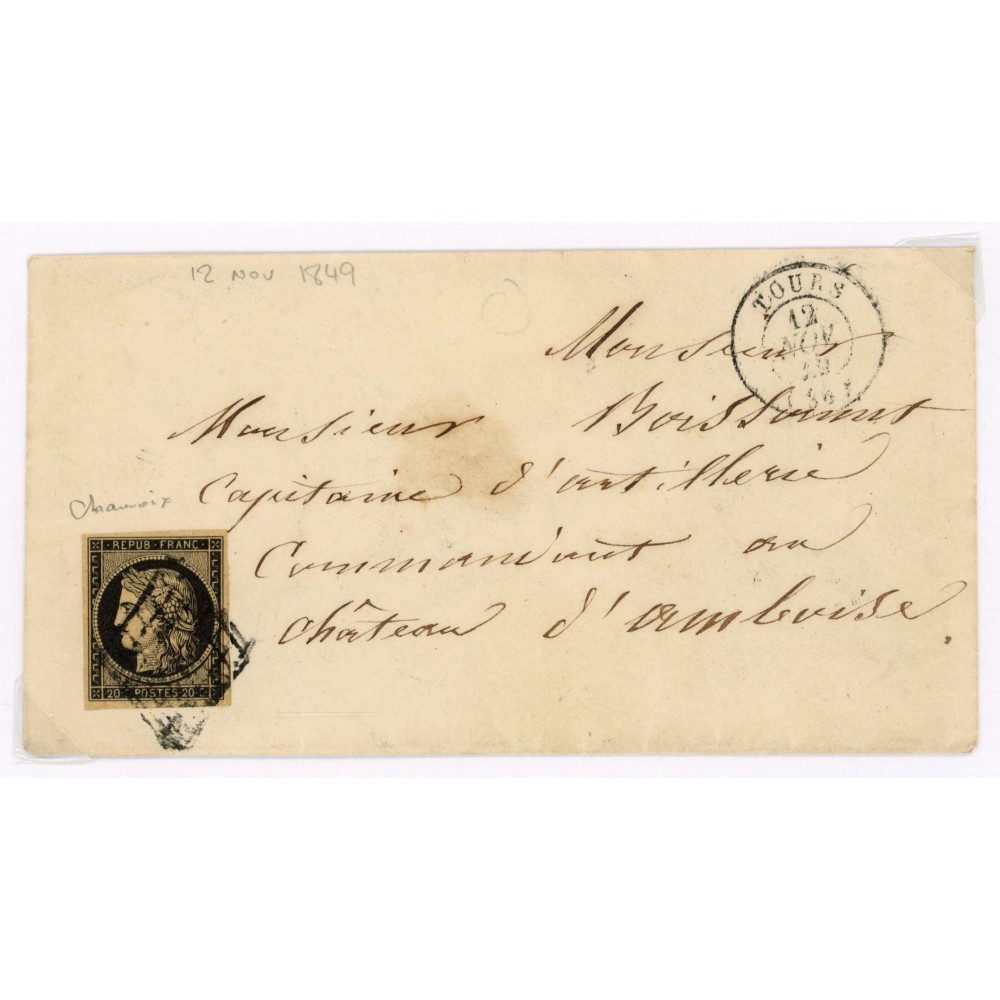 12 NOV 1849
TOURS
12
NOV
49
(36)
Monsieur
Monsieur Boissonnet
Capitaine d'artillerie
Commandant au
château d'amboise.
REPUB·FRANC·
20 POSTES 20